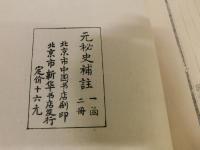 元秘史補註 一函二冊
北京市中国书店刷印
北京市新华书店发行
定价十六元